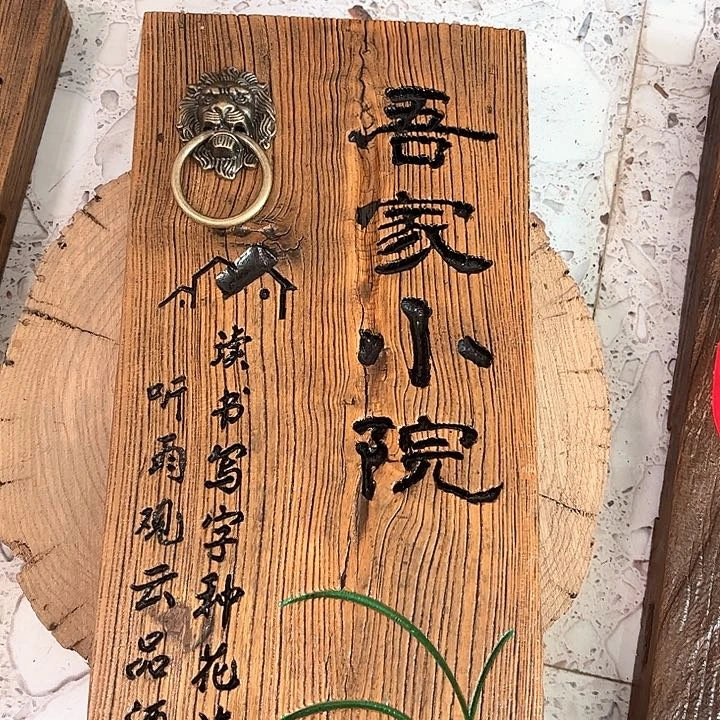 吾家小院
读书写字种花
听雨观云品